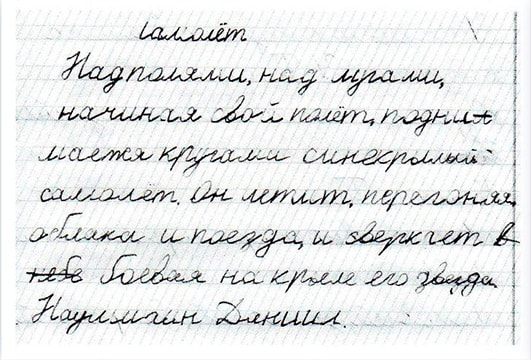 самолёт
Надполями, над лугами,
начиная свой полёт, подни
мается кругами синекрылый
самолёт. Он летит, перегоняя
облака и поезда, и сверкает
боевая на крыле его звезда.
Даниил.